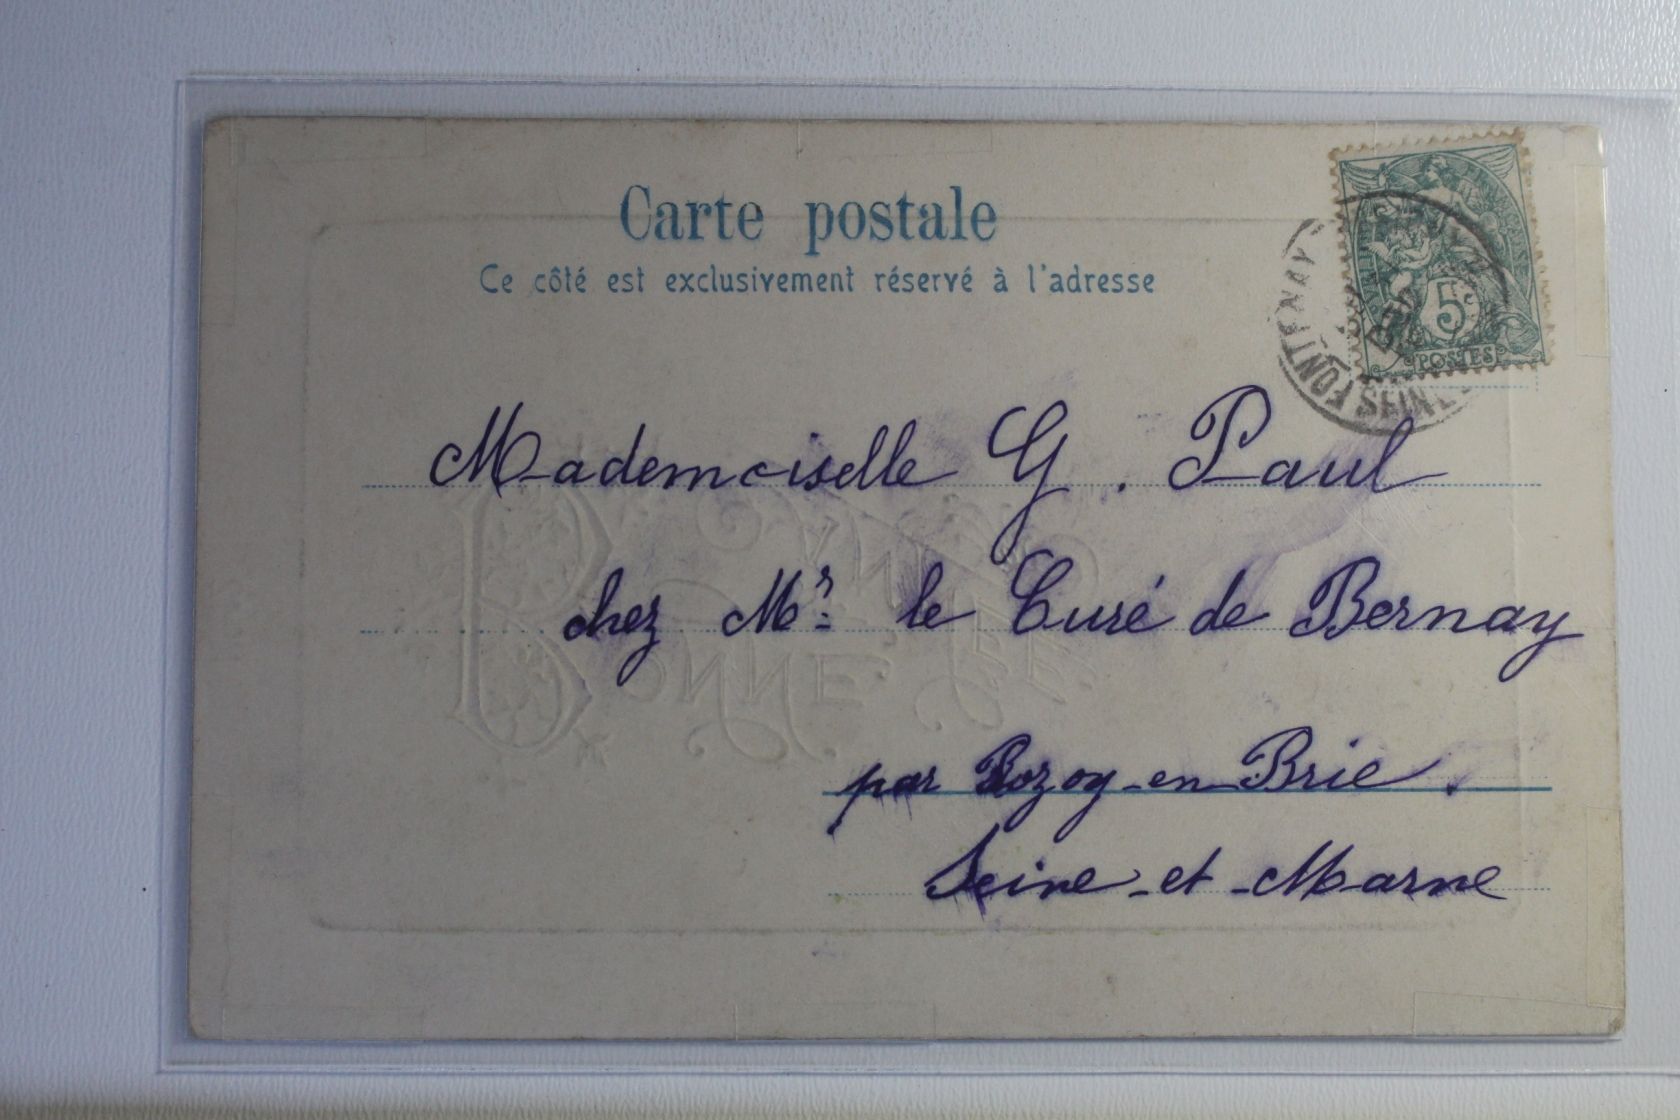 Carte postale
Ce côté est exclusivement réservé à l'adresse
5c
POSTES
FONTENAY
SEINE
Mademoiselle G. Paul
chez Mr. le Curé de Bernay
par Rozoy-en-Brie.
Seine-et-Marne
BONNE